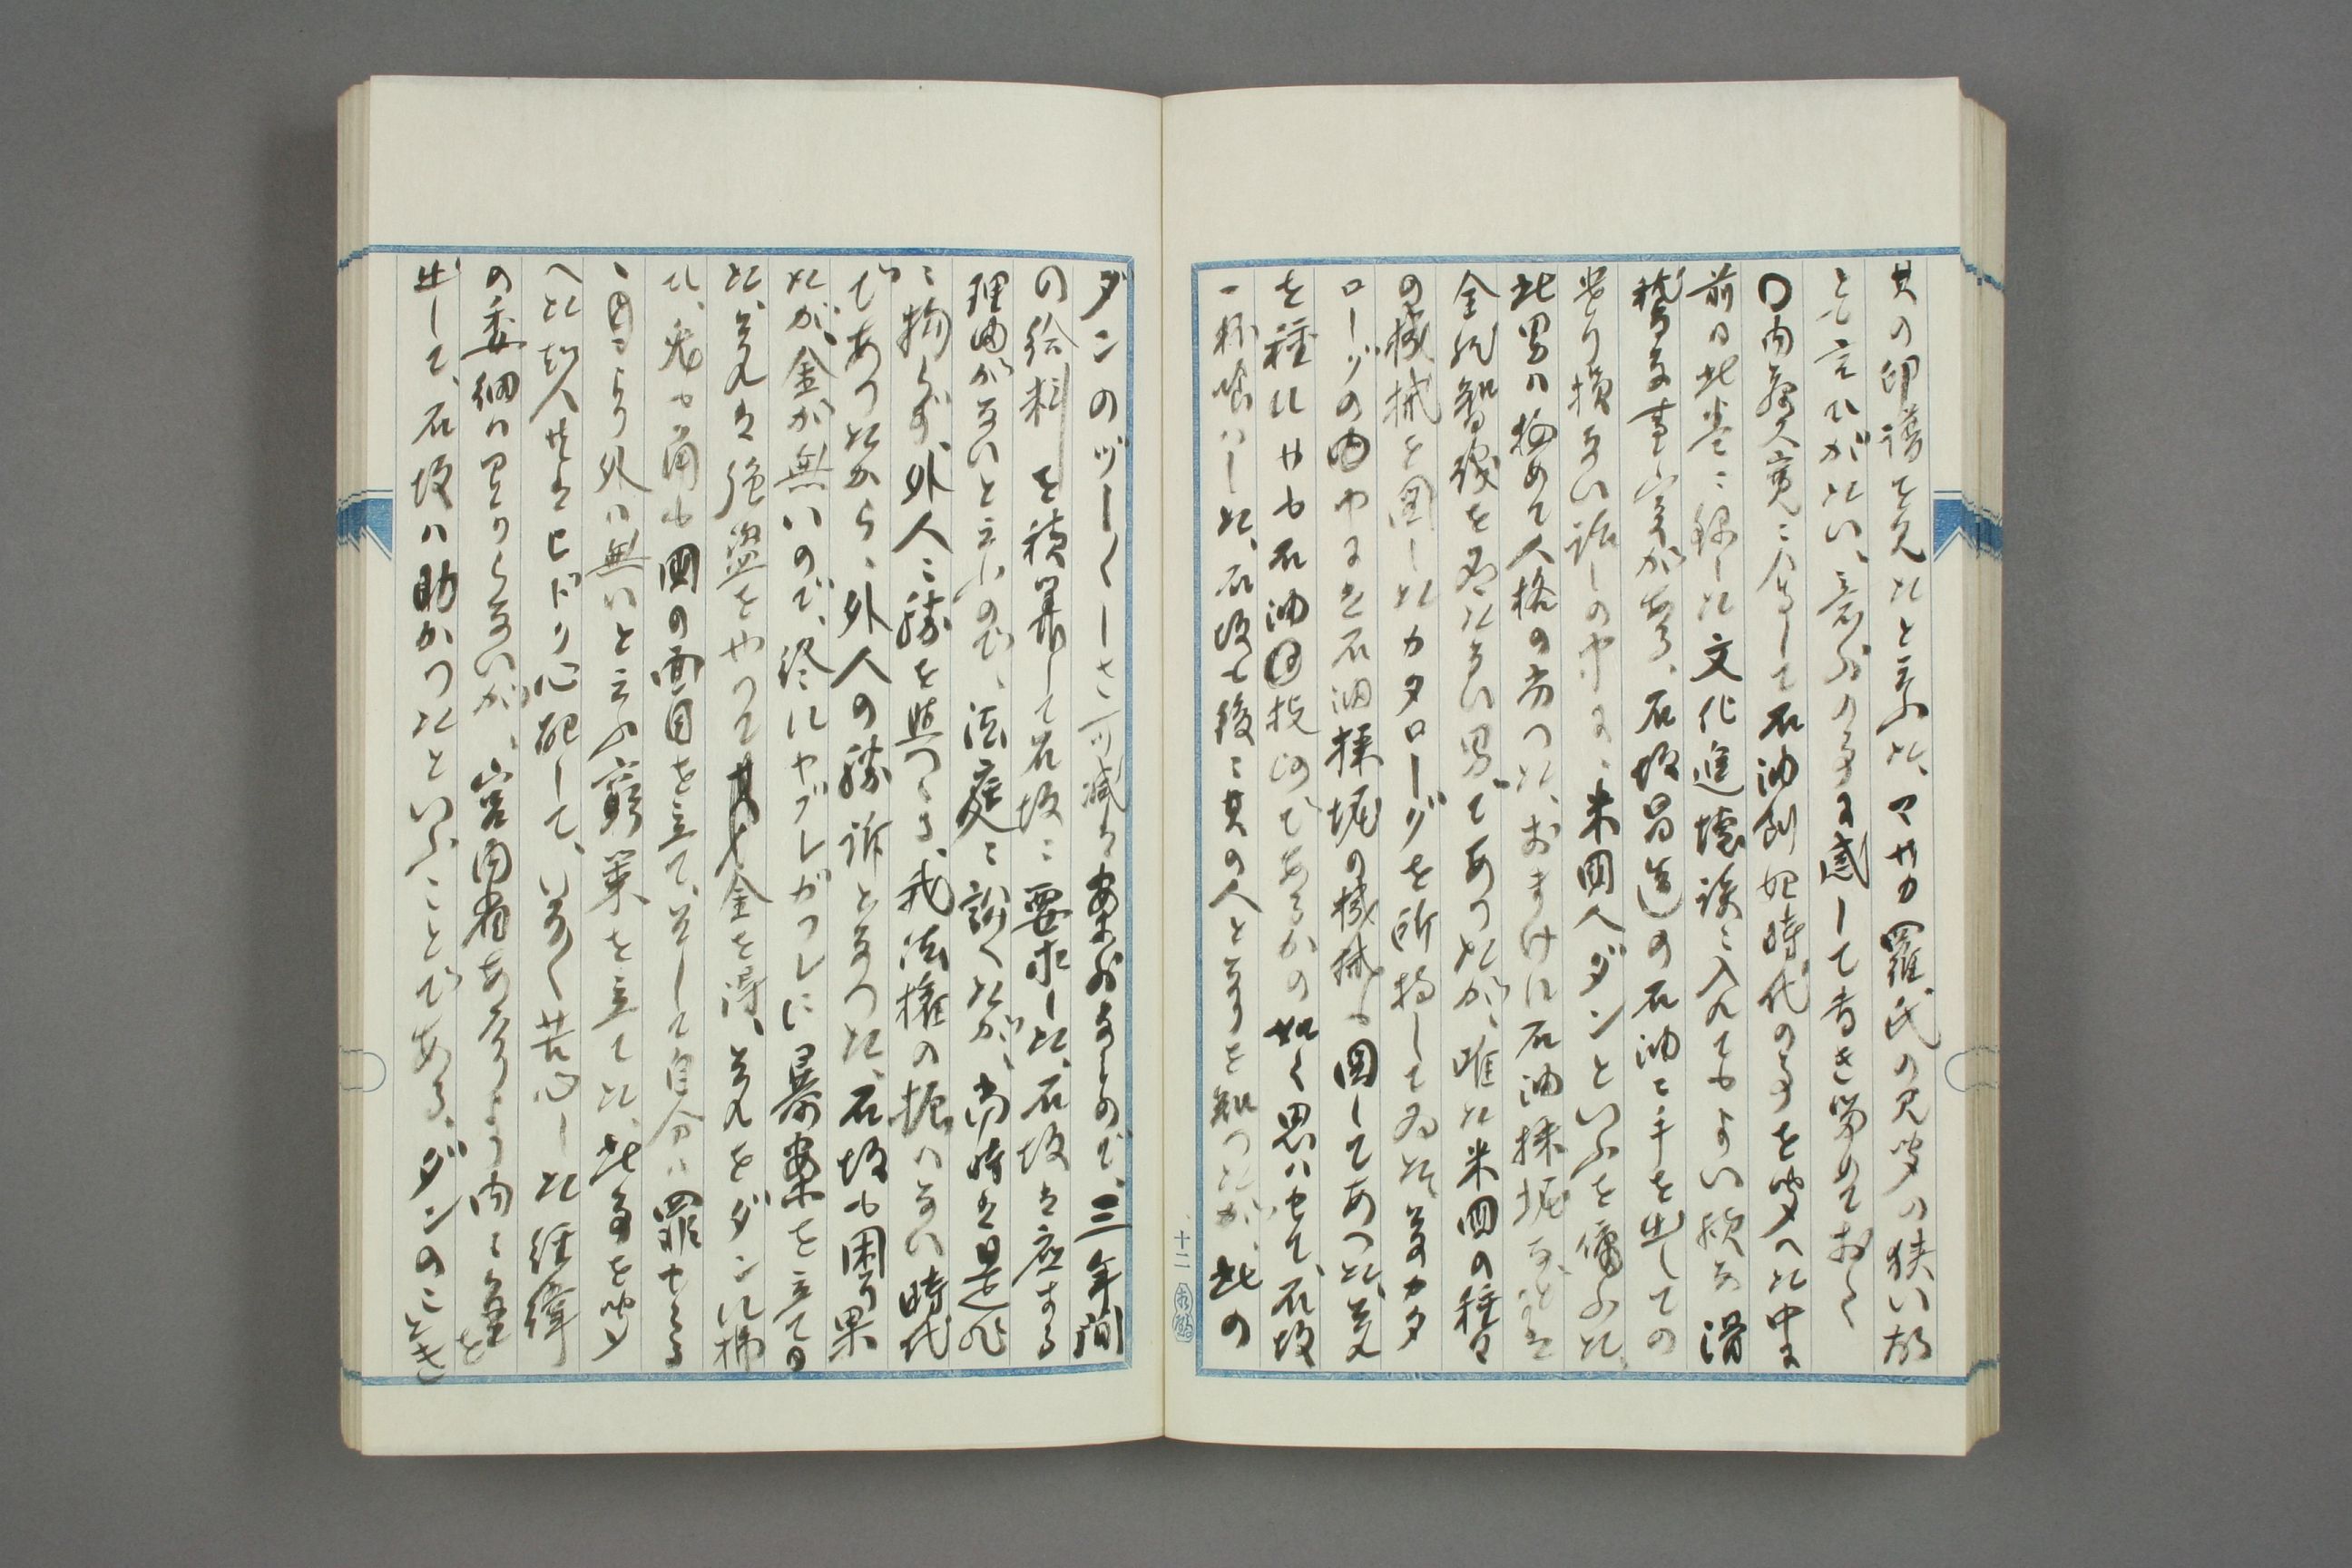 其の印譜を見たと云ふた、マサカ羅氏の見聞の狭い故
とも言ひがたい、意外の事に感して書き留めておく
〇内藤久寛に会して石油創始時代の事を聞へた中に
前日此巻に録した文化進壚談に入れてもよい様な滑
稽な事実がある、石坂昌造の石油に手を出しての
学り損ない話しの中に、米国人ダンといふを傭ふた、
此男ハ極めて人格の劣つた、おまけに石油採掘などに
全然智識を有たない男であつたが、唯た米国の種々
の機械を図したカタローグを所持して居た、其カタ
ローグの内中には石油採掘の機械も図してあつた、其れ
を種にサも石油自技師であるかの如く思ハせて、石坂
一杯喰ハした、石坂も後に其の人となりを知つたが、此の
十二
ダンのヅー〳〵しさ加減は案外なもので、三年間
の給料を積算して石坂に要求した、石坂は応する
理由がないと云ふので、法庭に訴へたが、当時は是非
に拘らず、外人に勝を與へる、我法権の振ハない時代
であつたから、外人の勝訴となつた、石坂も困り果
たが、金が無いので、終にヤブレガフレに暴案を立て
た、其れは強盗をやつて金を得、其れをダンに拂
ひ、兎も角も国の面目を立て、そして自分ハ罪せらる
ゝ因より外ハ無いと云ふ窮策を立てた、此事を聞
へた知人共はヒドク心配して、いろ〳〵苦心した経緯
の委細ハ思りらないが、宮内省あたりより内々金を
出して、石坂ハ助かつたといふことである、ダンのごとき